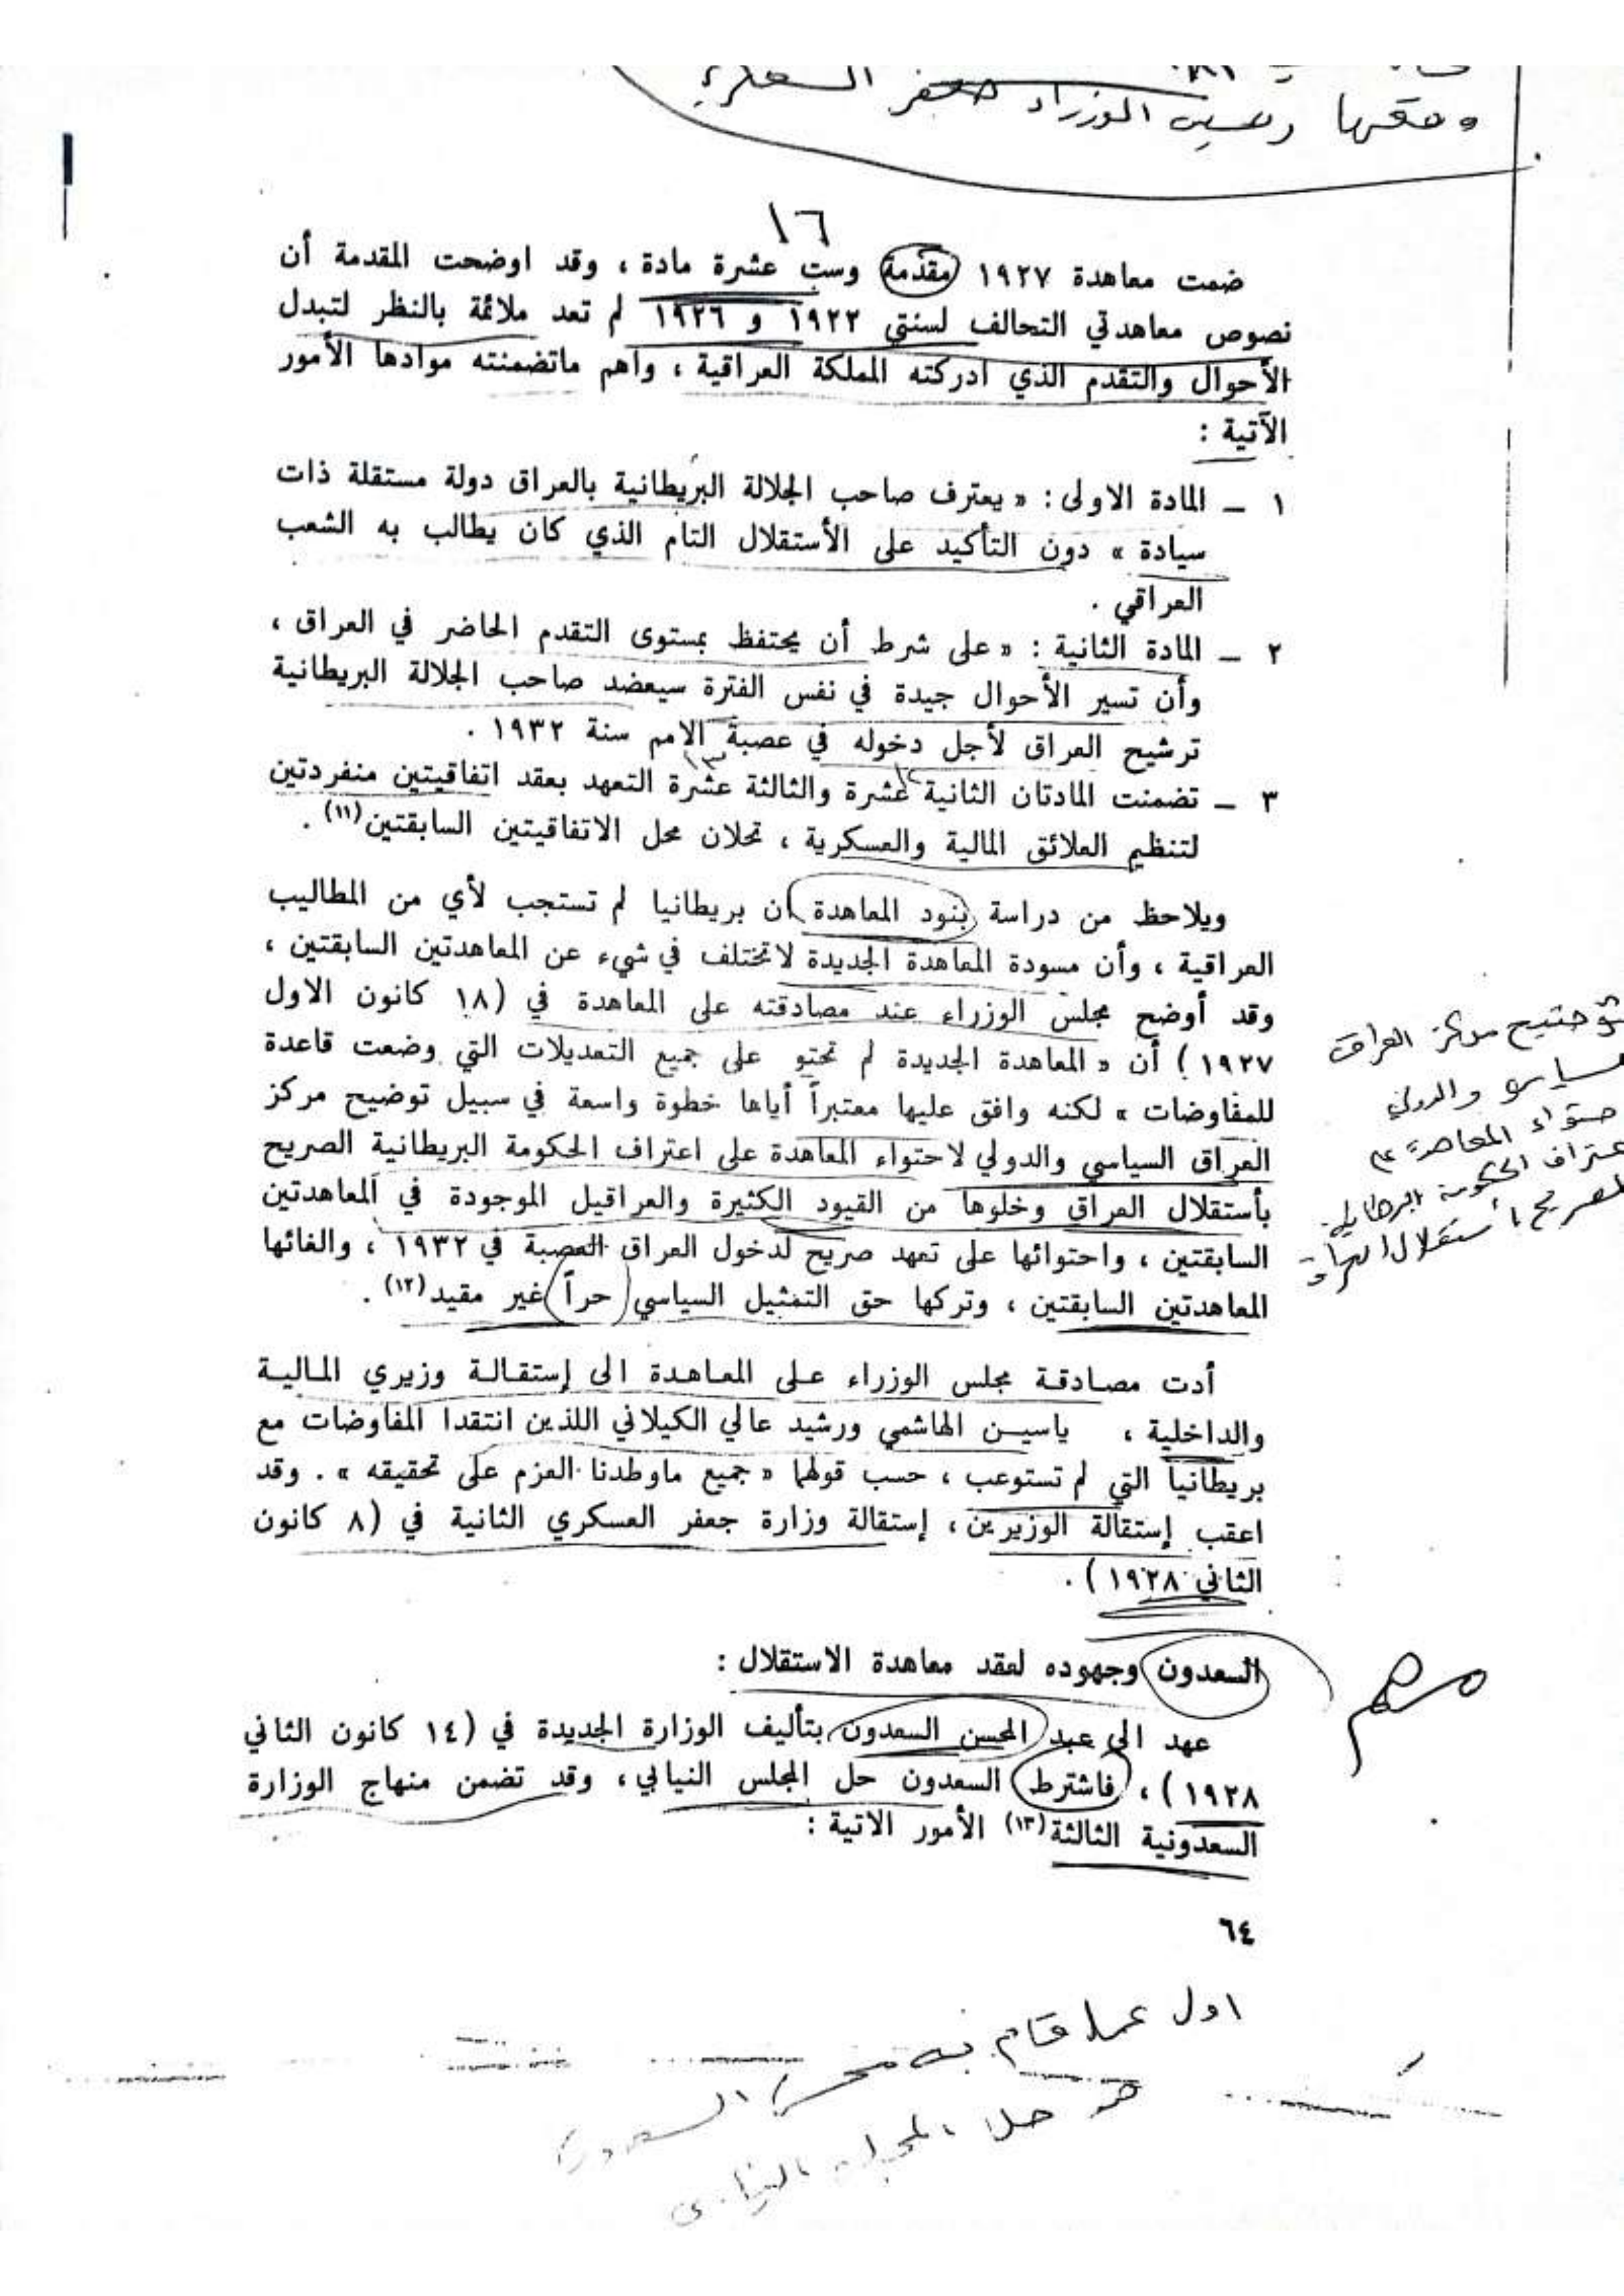 وقعها رئيس الوزراء جعفر العسكري
١٦
ضمت معاهدة ١٩٢٧ مقدمة وست عشرة مادة ، وقد اوضحت المقدمة أن
نصوص معاهدتي التحالف لسنتي ١٩٢٢ و ١٩٢٦ لم تعد ملائمة بالنظر لتبدل
الأحوال والتقدم الذي ادركته المملكة العراقية ، وأهم ماتضمنته موادها الأمور
الآتية :
١ ـ المادة الاولى : « يعترف صاحب الجلالة البريطانية بالعراق دولة مستقلة ذات
سيادة » دون التأكيد على الأستقلال التام الذي كان يطالب به الشعب
العراقي .
٢ ـ المادة الثانية : « على شرط أن يحتفظ بمستوى التقدم الحاضر في العراق ،
وأن تسير الأحوال جيدة في نفس الفترة سيعضد صاحب الجلالة البريطانية
ترشيح العراق لأجل دخوله في عصبة الامم سنة ١٩٣٢ .
١٢ ١٣
٣ ـ تضمنت المادتان الثانية عشرة والثالثة عشرة التعهد بعقد اتفاقيتين منفردتين
لتنظيم العلائق المالية والعسكرية ، تحلان محل الاتفاقيتين السابقتين(١١) .
ويلاحظ من دراسة بنود المعاهدة ان بريطانيا لم تستجب لأي من المطاليب
العراقية ، وأن مسودة المعاهدة الجديدة لاتختلف في شيء عن المعاهدتين السابقتين ،
وقد أوضح مجلس الوزراء عند مصادقته على المعاهدة في (١٨ كانون الاول
١٩٢٧) أن « المعاهدة الجديدة لم تحتو على جميع التعديلات التي وضعت قاعدة
للمفاوضات » لكنه وافق عليها معتبراً أياها خطوة واسعة في سبيل توضيح مركز
العراق السياسي والدولي لاحتواء المعاهدة على اعتراف الحكومة البريطانية الصريح
بأستقلال العراق وخلوها من القيود الكثيرة والعراقيل الموجودة في المعاهدتين
السابقتين ، واحتوائها على تعهد صريح لدخول العراق العصبة في ١٩٣٢ ، والغائها
المعاهدتين السابقتين ، وتركها حق التمثيل السياسي حراً غير مقيد(١٢) .
توضيح مركز العراق
السياسي والدولي
احتواء المعاهدة على
اعتراف الحكومة البريطانية
الصريح باستقلال العراق
أدت مصادقة مجلس الوزراء على المعاهدة الى إستقالة وزيري المالية
والداخلية ، ياسين الهاشمي ورشيد عالي الكيلاني اللذين انتقدا المفاوضات مع
بريطانيا التي لم تستوعب ، حسب قولهما « جميع ماوطدنا العزم على تحقيقه » . وقد
اعقب إستقالة الوزيرين ، إستقالة وزارة جعفر العسكري الثانية في (٨ كانون
الثاني ١٩٢٨) .
السعدون وجهوده لعقد معاهدة الاستقلال :
مهم
عهد الى عبد المحسن السعدون بتأليف الوزارة الجديدة في (١٤ كانون الثاني
١٩٢٨) ، فاشترط السعدون حل المجلس النيابي ، وقد تضمن منهاج الوزارة
السعدونية الثالثة(١٣) الأمور الاتية :
٦٤
اول عمل قام به محسن السعدون
هو حل المجلس النيابي